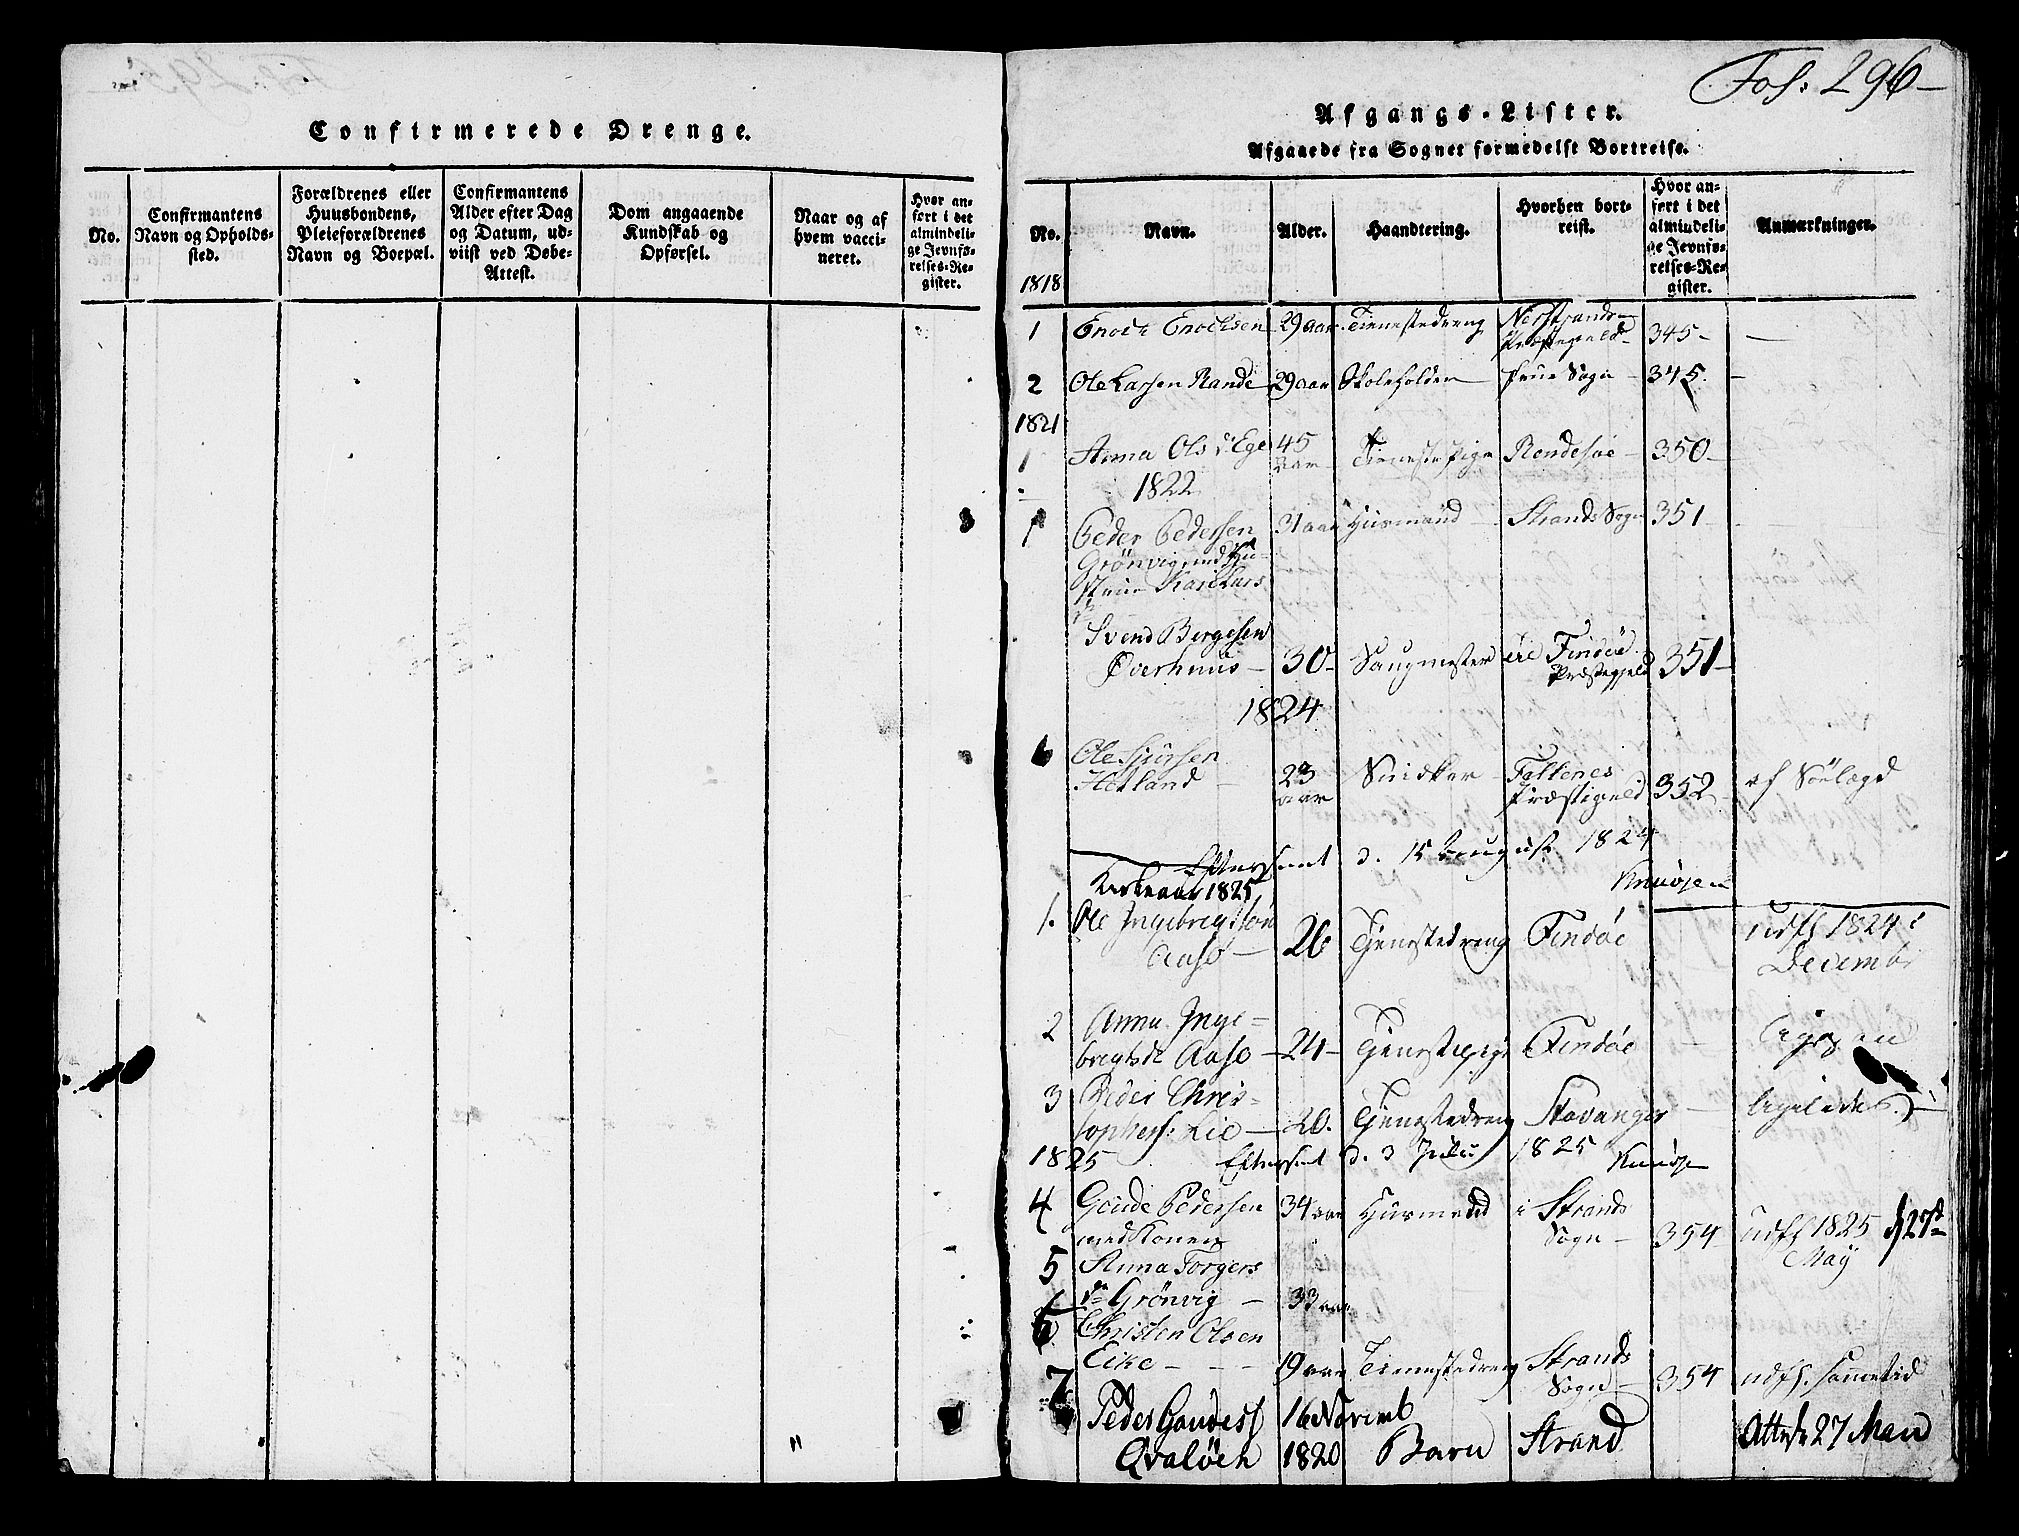 Confirmerede Drenge.
No.
Confirmantens Navn og Opholdssted.
Forældrenes eller Huusbondens, Pleieforældrenes Navn og Boepæl.
Confirmantens Alder efter Dag og Datum, udviist ved Døbe-Attest.
Dom angaaende Kundskab og Opførsel.
Naar og af hvem vaccineret.
Hvor anført i det almindelige Jevnførelses-Register.
Fol: 296
Afgangs-Lister.
Afgaaede fra Sognet formedelst Bortreise.
No.
Navn.
Alder.
Haandtering.
Hvorhen bortreist.
Hvor anført i det almindelige Jevnførelses-Register.
Anmærkninger.
1818
1 Enoch Enochsen 29 aar Tienestedreng Nerstrands Præstegield 345 -
2 Ole Larsen Rande 29 aar Skoleholder Sogn 345. -
1821
1 Anna Ols dr Ege 45 aar Tienestepige Rendesøe 350
1822
1 Peder Pedersen 31 aar Huusmand Strands Sogn 351
Grønvig, med Hustrue Kari Lars
Svend Bergesen
Overhuus 30 Saugmester Findøe Præstegjeld 351
1824
Ole
Hetland 23 aar Snidker Præstigield 352 af Søelægd
Efterseet d. 15 August 1824
Kirkeaar 1825
1. Ole Ingebrigtsøn
Aasø 26 Tjenestedreng Findøe udfl 1824 i Decembr
2 Anna Inge-
brigtsdr Aasø 24 Tjenestepige Findøe
3 Peder Chris-
tophers: Lie 20. Tjenestedreng Stavanger ligeledes
1825 Efterseet d. 3 Juli 1825
4 Goude Pedersen 34 aar Huusmand i Strands Sogn 354 udfl 1825 d 27d May
med Konen
5 Anna Torgers
dr Grønvig 33 aar
6 Christen Olsen
Eike 19 aar Tienestedreng Strands Sogn 354 udfl. sammetid
7 Peder Goudess 16 Novemb
Qvaløen 1820 Barn Strand Attest 27 Mai